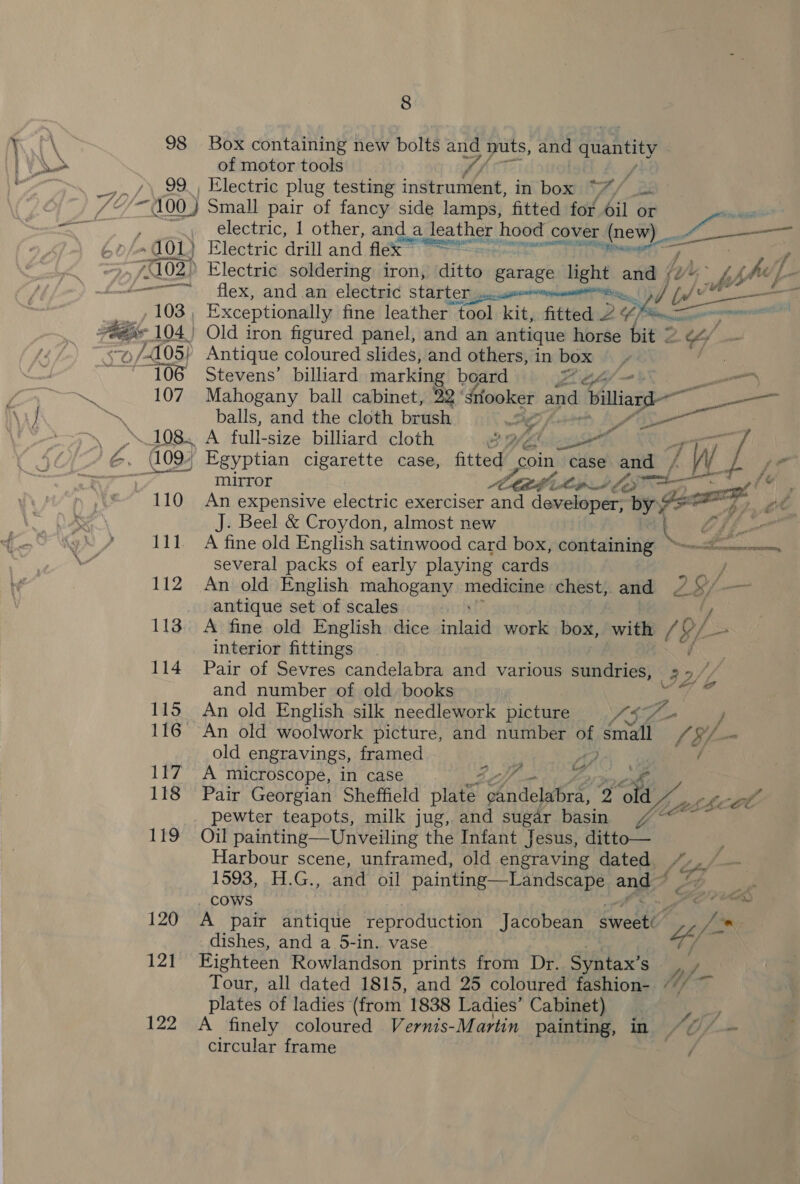 8
98 Box containing new bolts and nuts, and quantity
of motor tools
99 Electric plug testing instrument, in box
100 Small pair of fancy side lamps, fitted for oil or
electric, 1 other, and a leather hood cover (new)
101 Electric drill and flex
102 Electric soldering iron, ditto garage light and
flex, and an electric starter
103 Exceptionally fine leather tool kit, fitted
104 Old iron figured panel, and an antique horse bit
105 Antique coloured slides, and others, in box
106 Stevens' billiard marking board
107 Mahogany ball cabinet, 22 snooker and billiard
balls, and the cloth brush
108 A full-size billiard cloth
109 Egyptian cigarette case, fitted coin case and
mirror
110 An expensive electric exerciser and developer, by
J. Beel & Croydon, almost new
111 A fine old English satinwood card box, containing
several packs of early playing cards
112 An old English mahogany medicine chest, and
antique set of scales
113 A fine old English dice inlaid work box, with
interior fittings
114 Pair of Sevres candelabra and various sundries,
and number of old books
115 An old English silk needlework picture
116 An old woolwork picture, and number of small
old engravings, framed
117 A microscope, in case
118 Pair Georgian Sheffield plate candelabra, 2 old
pewter teapots, milk jug, and sugar basin
119 Oil painting—Unveiling the Infant Jesus, ditto—
Harbour scene, unframed, old engraving dated
1593, H.G., and oil painting—Landscape and
cows
120 A pair antique reproduction Jacobean sweet
dishes, and a 5-in. vase
121 Eighteen Rowlandson prints from Dr. Syntax's
Tour, all dated 1815, and 25 coloured fashion-
plates of ladies (from 1838 Ladies' Cabinet)
122 A finely coloured Vernis-Martin painting, in
circular frame